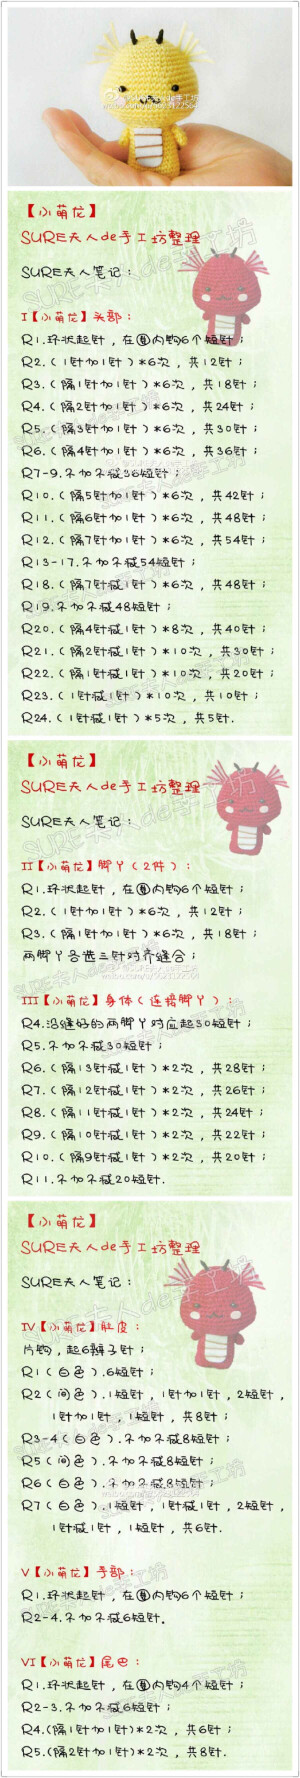 【小萌龙】
SURE夫人de手工坊整理
SURE夫人笔记：
I【小萌龙】头部：
R1.环状起针，在圈内钩6个短针；
R2.（1针加1针）*6次，共12针；
R3.（隔1针加1针）*6次，共18针；
R4.（隔2针加1针）*6次，共24针；
R5.（隔3针加1针）*6次，共30针；
R6.（隔4针加1针）*6次，共36针；
R7-9.不加不减36短针；
R10.（隔5针加1针）*6次，共42针；
R11.（隔6针加1针）*6次，共48针；
R12.（隔7针加1针）*6次，共54针；
R13-17.不加不减54短针；
R18.（隔7针减1针）*6次，共48针；
R19.不加不减48短针；
R20.（隔4针减1针）*8次，共40针；
R21.（隔2针减1针）*10次，共30针；
R22.（隔1针减1针）*10次，共20针；
R23.（1针减1针）*10次，共10针；
R24.（1针减1针）*5次，共5针.
【小萌龙】
SURE夫人de手工坊整理
SURE夫人笔记：
II【小萌龙】脚丫（2件）：
R1.环状起针，在圈内钩6个短针；
R2.（1针加1针）*6次，共12针；
R3.（隔1针加1针）*6次，共18针；
两脚丫各选三针对齐缝合；
III【小萌龙】身体（连接脚丫）：
R4.沿缝好的两脚丫对应起30短针；
R5.不加不减30短针；
R6.（隔13针减1针）*2次，共28针；
R7.（隔12针减1针）*2次，共26针；
R8.（隔11针减1针）*2次，共24针；
R9.（隔10针减1针）*2次，共22针；
R10.（隔9针减1针）*2次，共20针；
R11.不加不减20短针.
【小萌龙】
SURE夫人de手工坊整理
SURE夫人笔记：
IV【小萌龙】肚皮：
片钩，起6辫子针；
R1（白色）.6短针；
R2（间色）.1短针，1针加1针，2短针，
1针加1针，1短针，共8针；
R3-4（白色）.不加不减8短针；
R5（间色）.不加不减8短针；
R6（白色）.不加不减8短针；
R7（白色）.1短针，1针减1针，2短针，
1针减1针，1短针，共6针.
V【小萌龙】手部：
R1.环状起针，在圈内钩6个短针；
R2-4.不加不减6短针。
VI【小萌龙】尾巴：
R1.环状起针，在圈内钩4个短针；
R2-3.不加不减6短针；
R4.(隔1针加1针)*2次，共6针；
R5.(隔2针加1针)*2次，共8针.